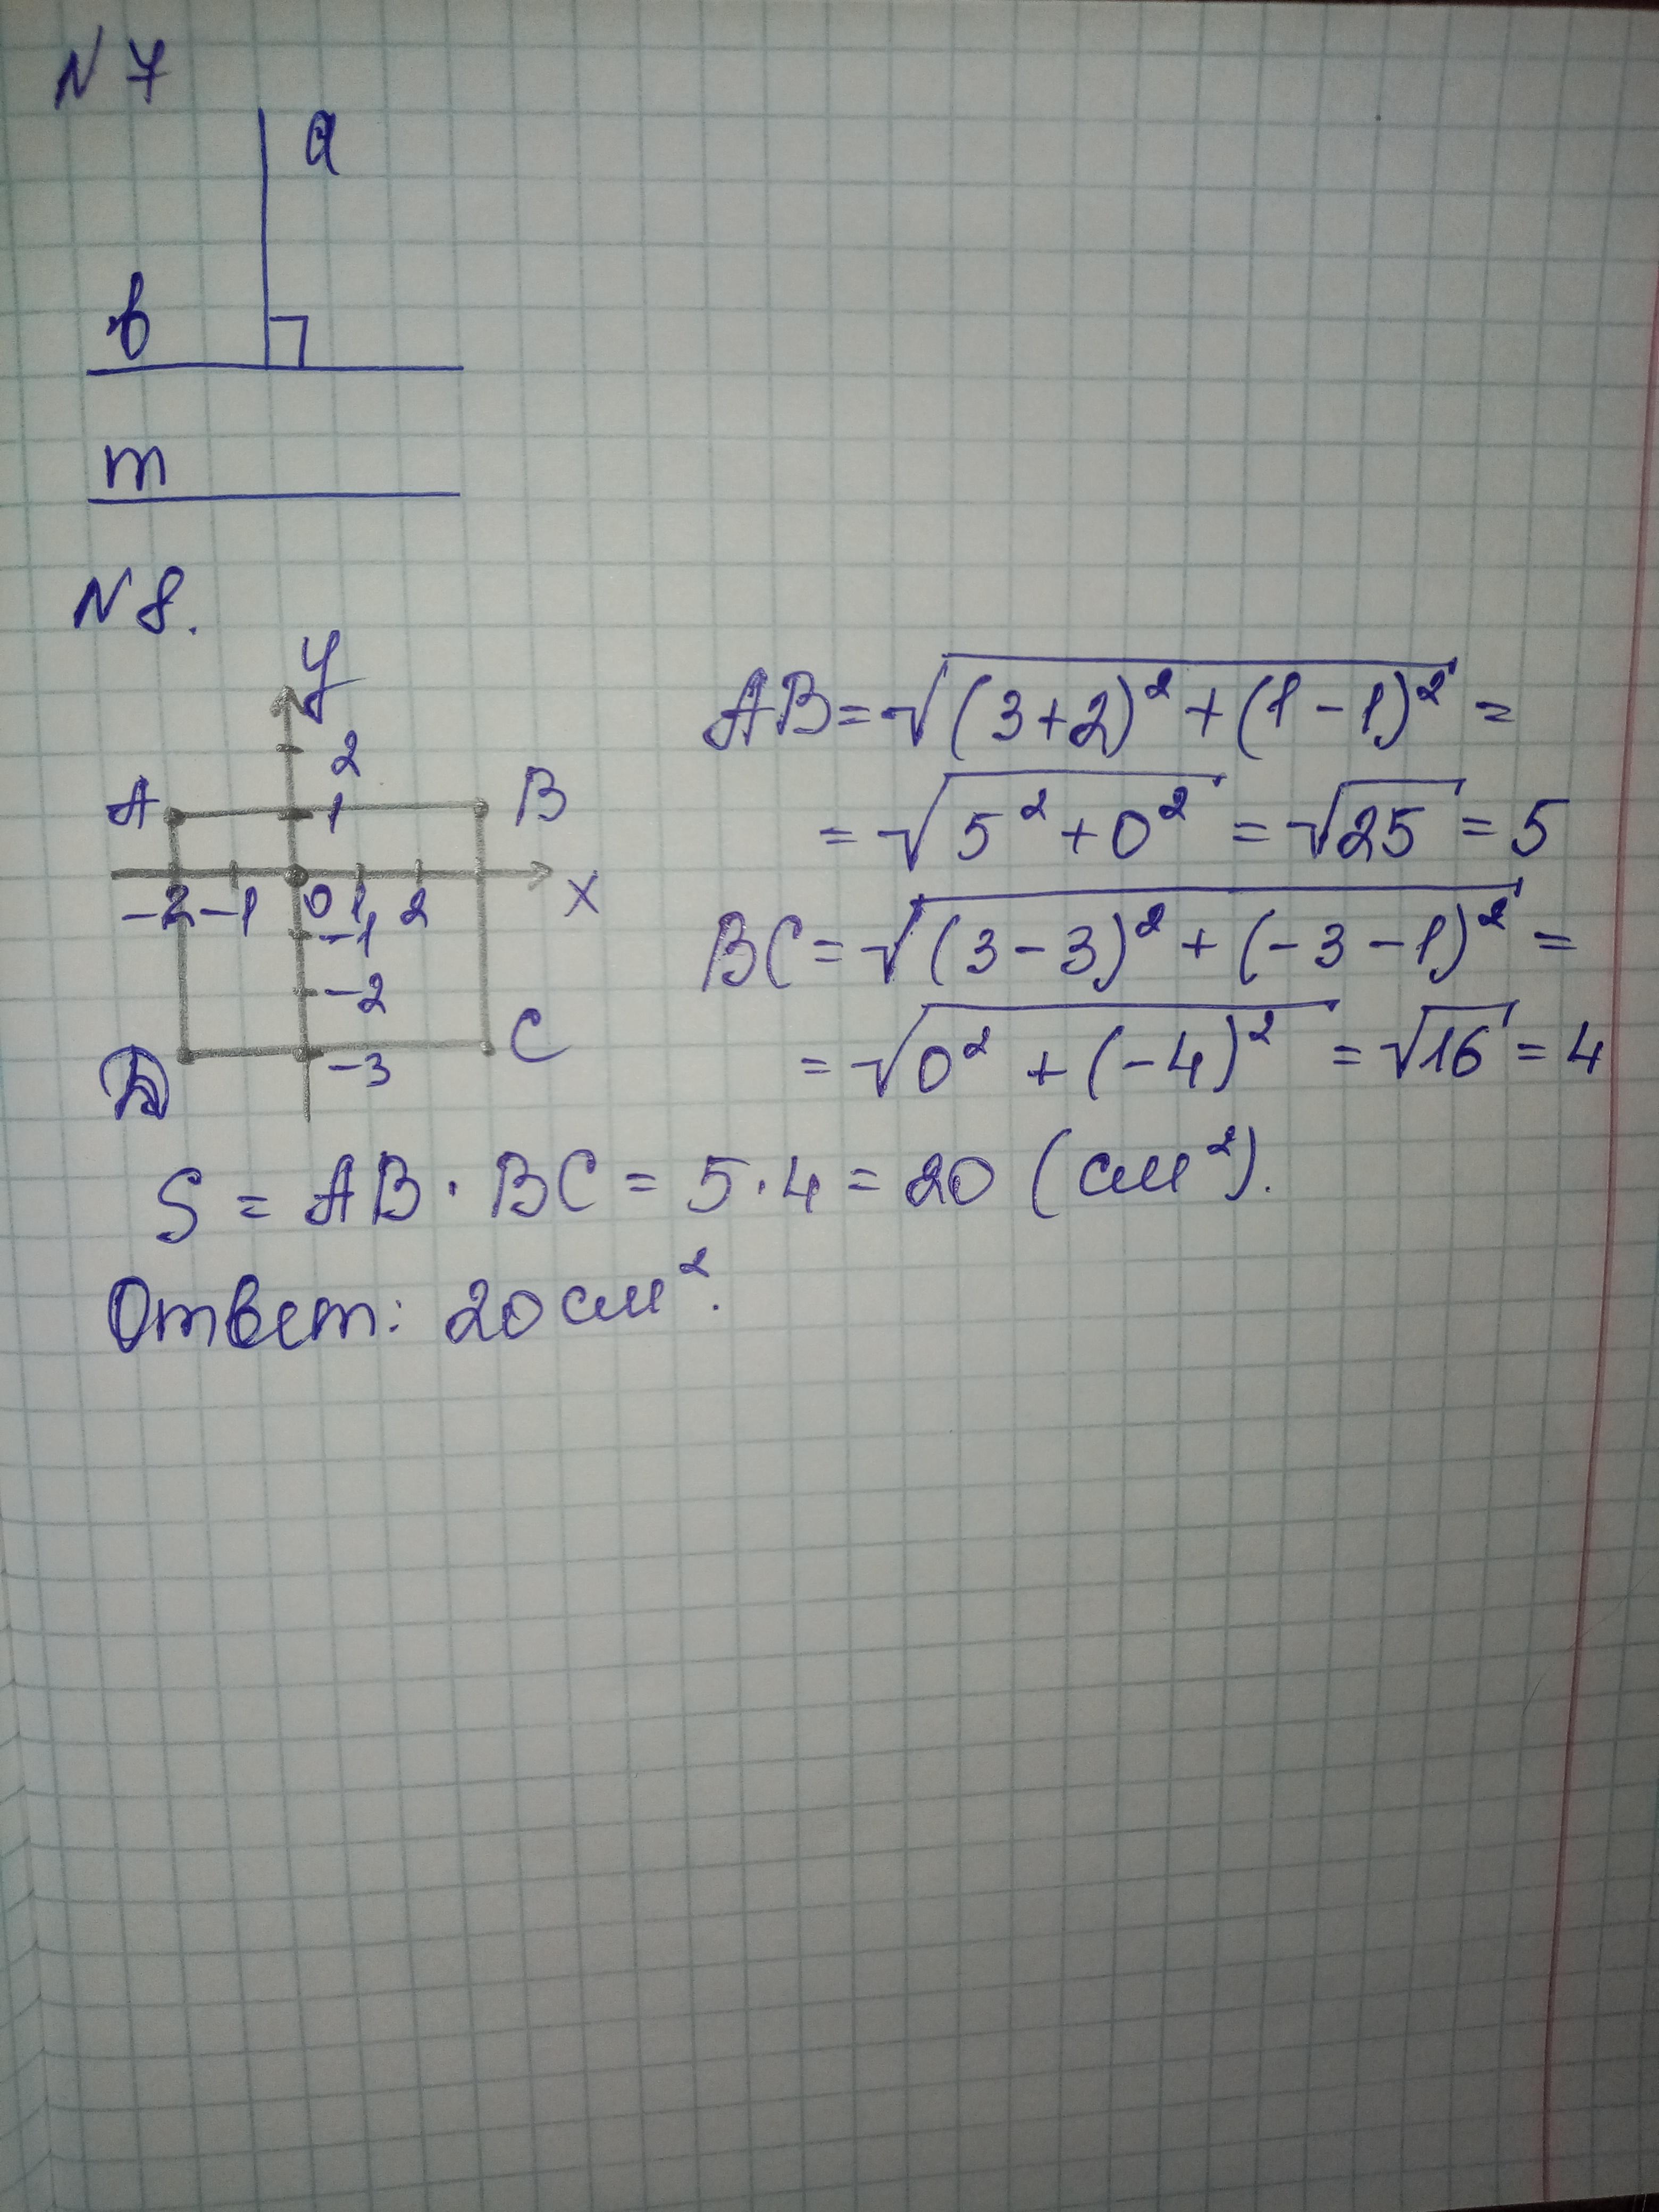 N 7
a
b
m
N 8.
y
2
A 1 B
-2 -1 0 1 2 x
-1
-2
D -3 C
AB = √(3+2)² + (1-1)² =
= √5² + 0² = √25 = 5
BC = √(3-3)² + (-3-1)² =
= √0² + (-4)² = √16 = 4
S = AB · BC = 5 · 4 = 20 (см²).
Ответ: 20 см².